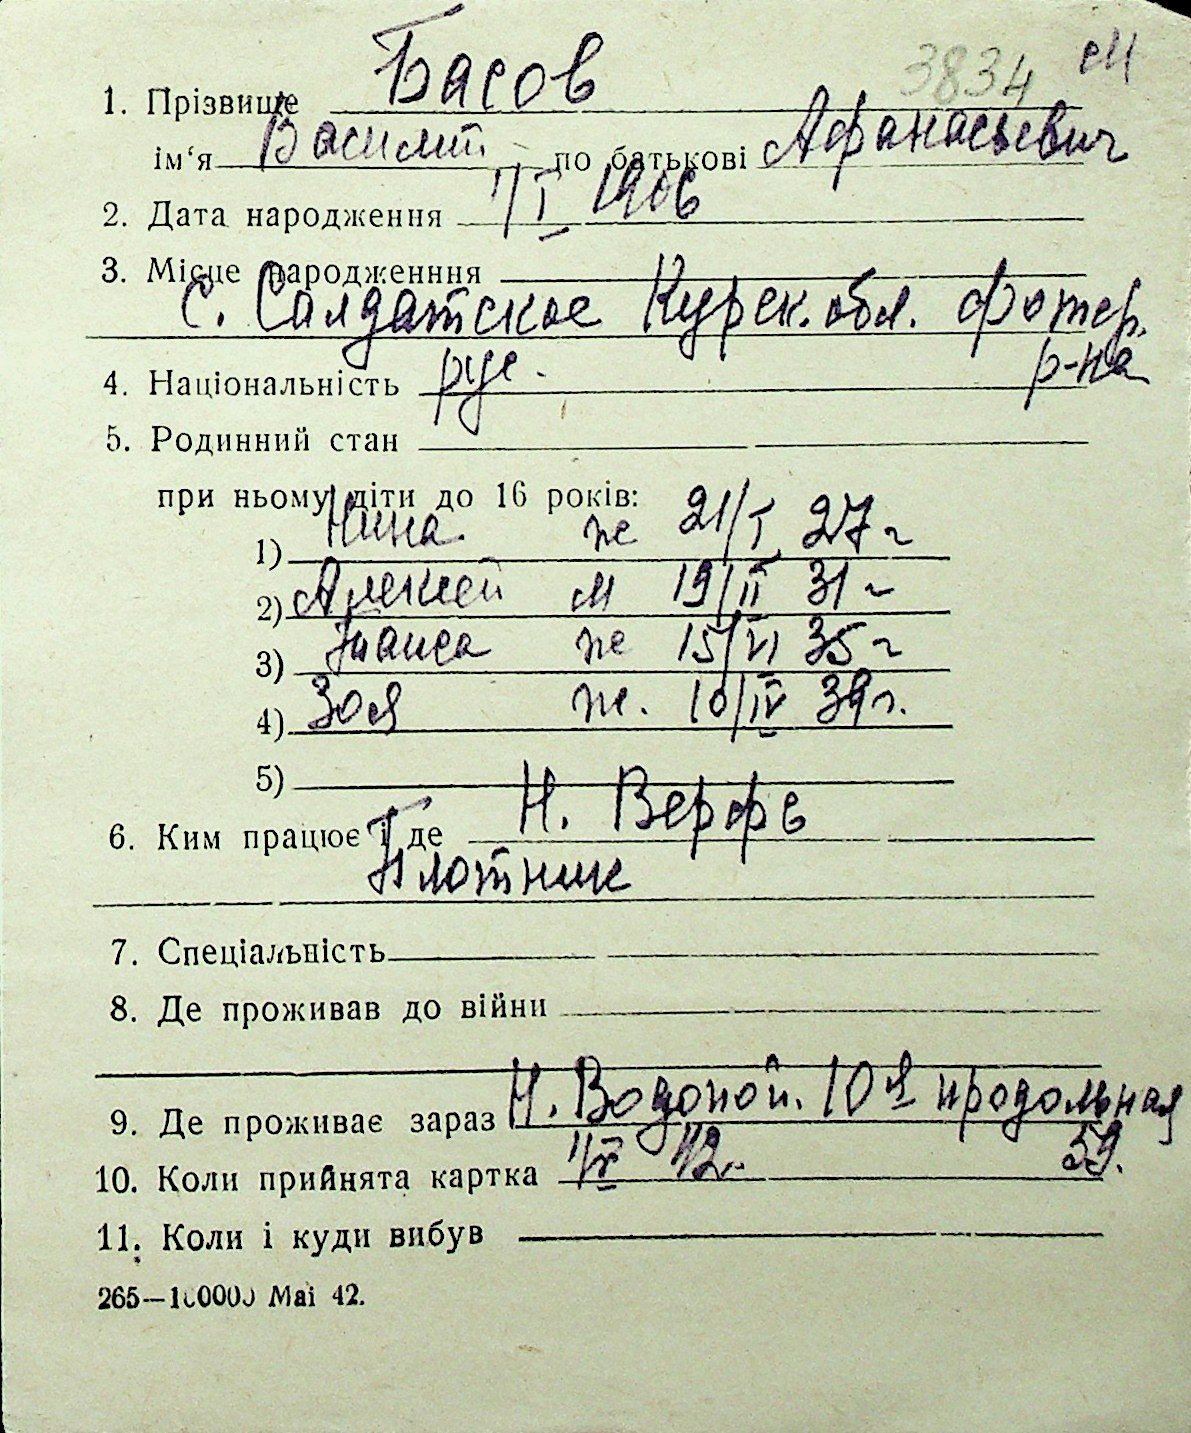 3834 м
1. Прізвище Басов
ім‘я Василий по батькові Афанасьевич
2. Дата народження 1/I 1906
3. Місце народженння
с. Салдатское Курск. обл. Фотер.
р-на
4. Національність рус.
5. Родинний стан
при ньому діти до 16 років:
1) Нина ж 21/I 27 г
2) Алексей м 19/II 31 г
3) Таиса ж 15/VI 35 г
4) Зоя ж. 10/IV 39 г.
5)
6. Ким працює і де Н. Верфь
Плотник
7. Спеціальність
8. Де проживав до війни
9. Де проживає зараз Н. Водопой. 10 я продольная
59.
10. Коли прийнята картка 42 г.
11. Коли і куди вибув
265—100000 Маі 42.